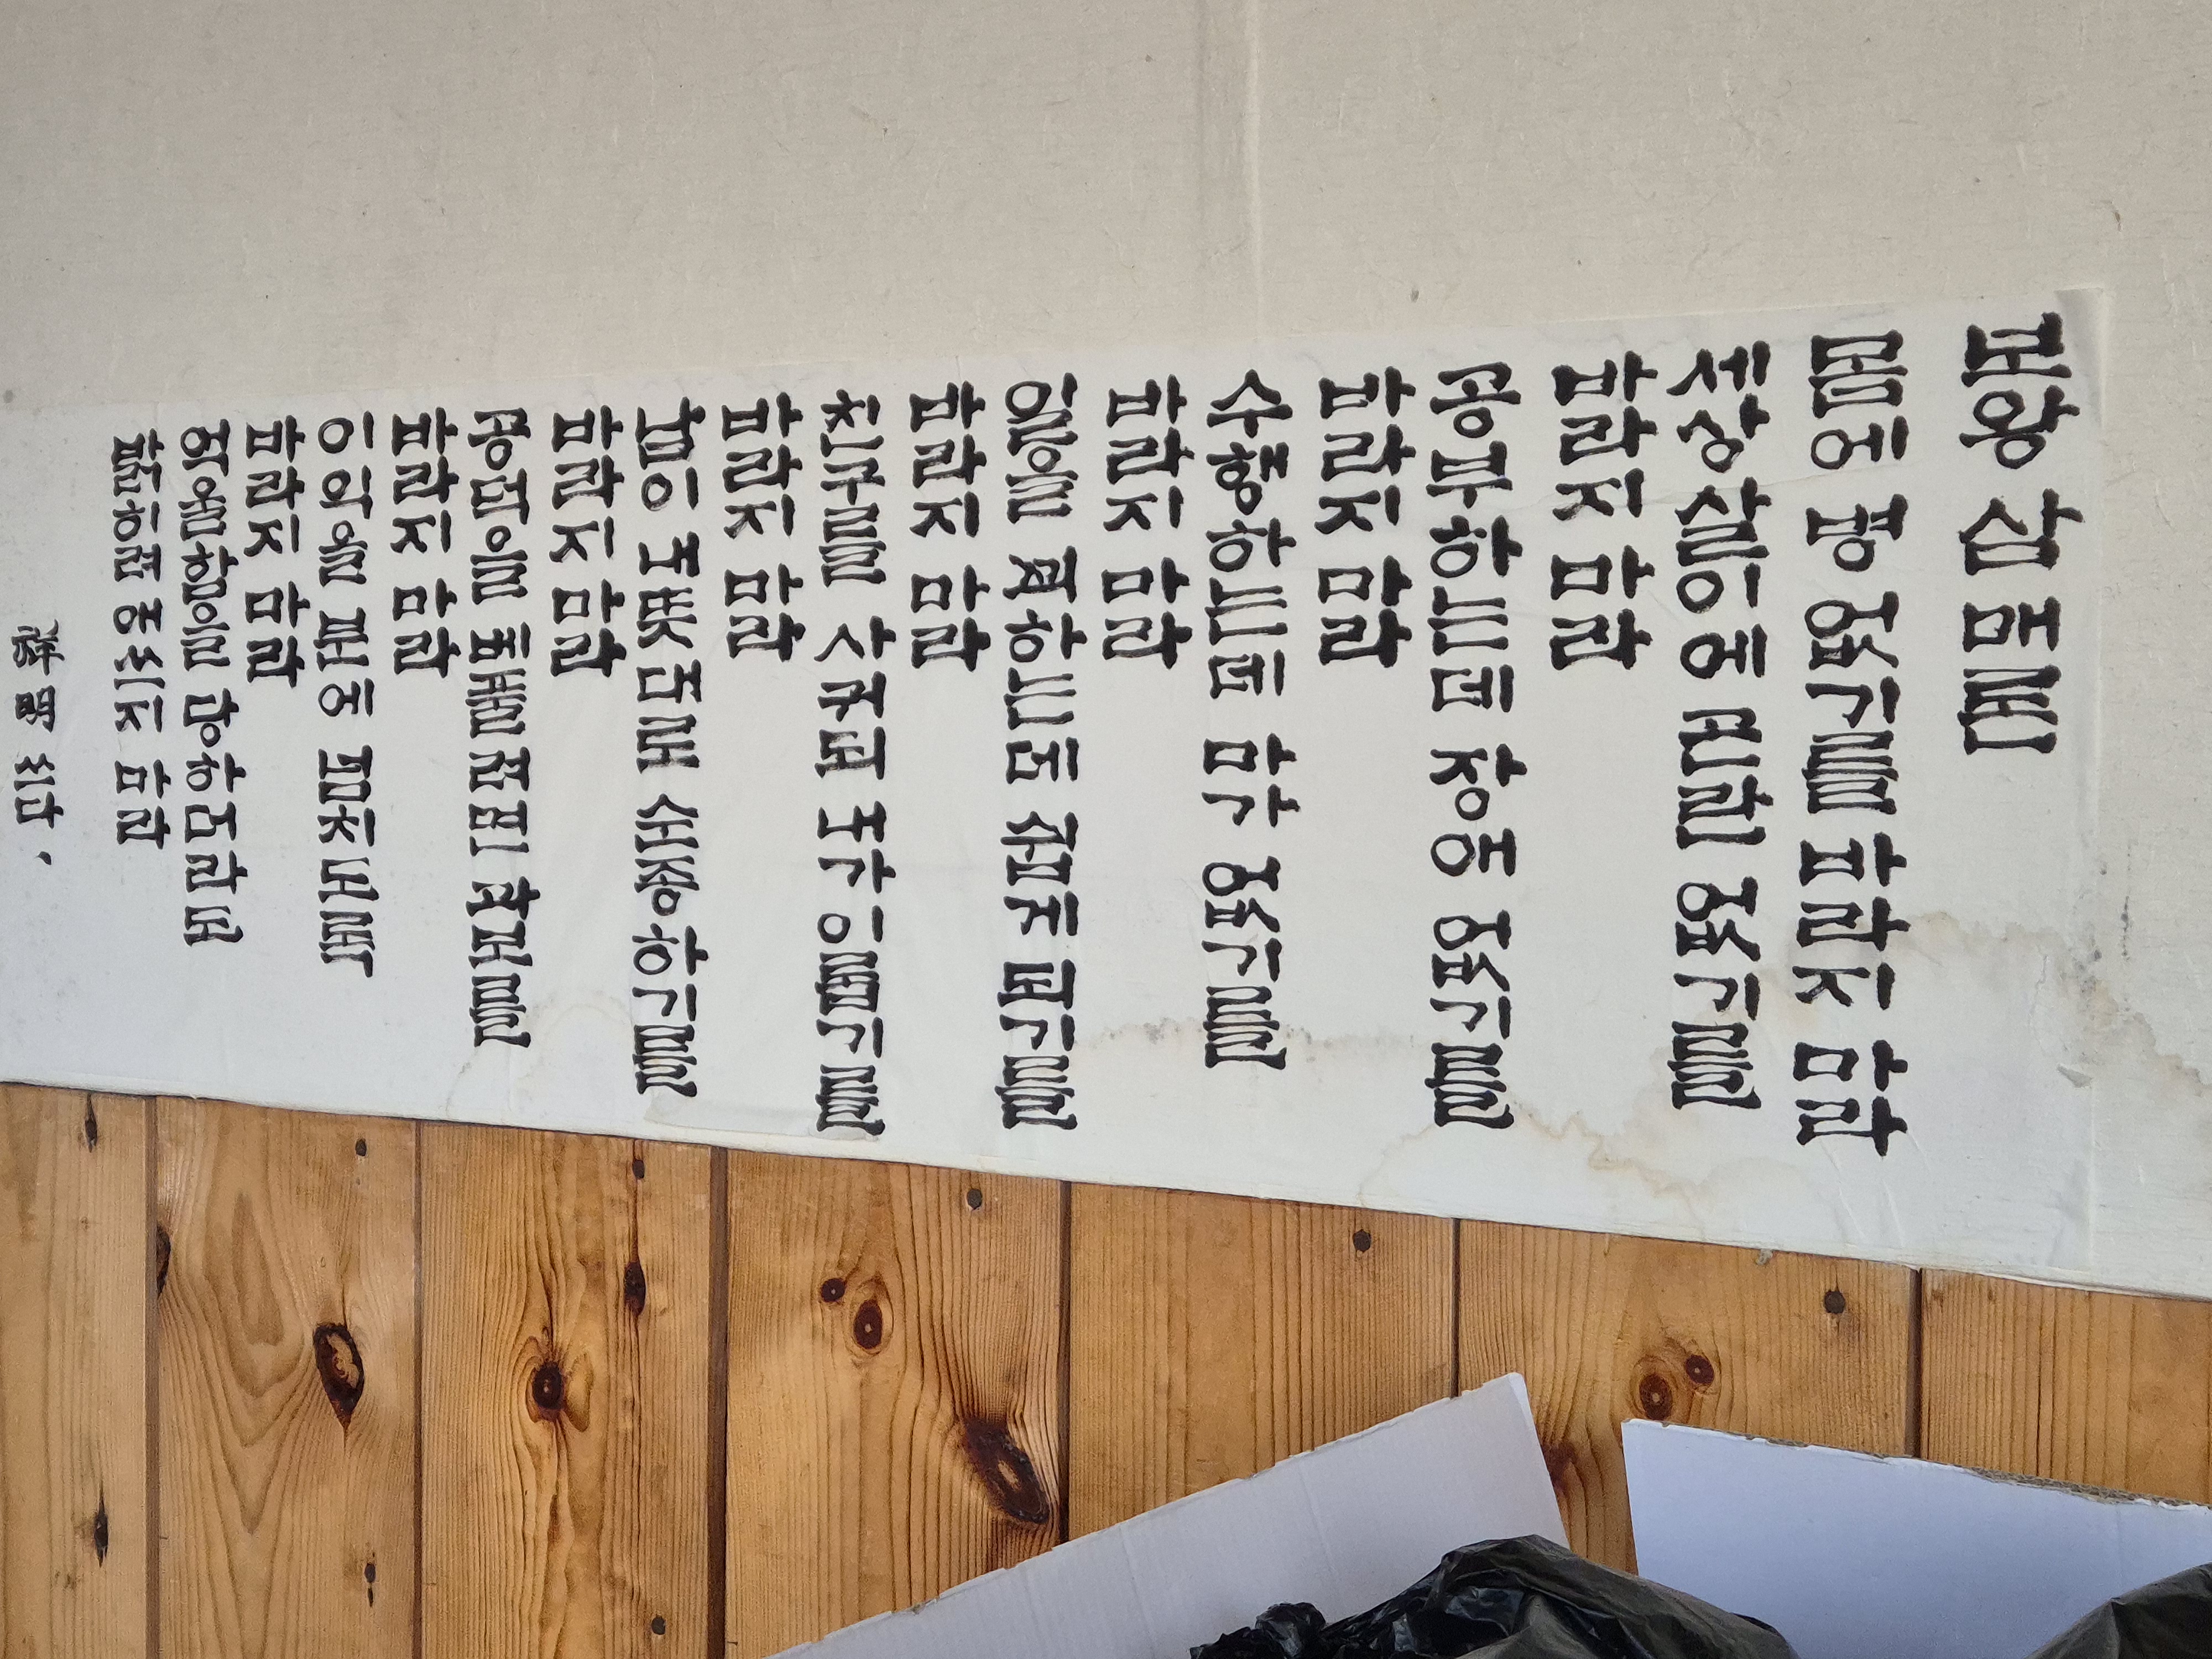 보왕 삼매
몸에 병 없기를 바라지 말라
세상살이에 곤란 없기를
바라지 말라
공부하는데 장애 없기를
바라지 말라
수행하는데 마 없기를
바라지 말라
일을 꾀하는데 쉽게 되기를
바라지 말라
친구를 사귀되 내가 이롭기를
바라지 말라
남이 내뜻대로 순종하기를
바라지 말라
공덕을
바라지 말라
이익을 분에 넘치도록
바라지 말라
억울함을 당하더라도
말라
쓰다.